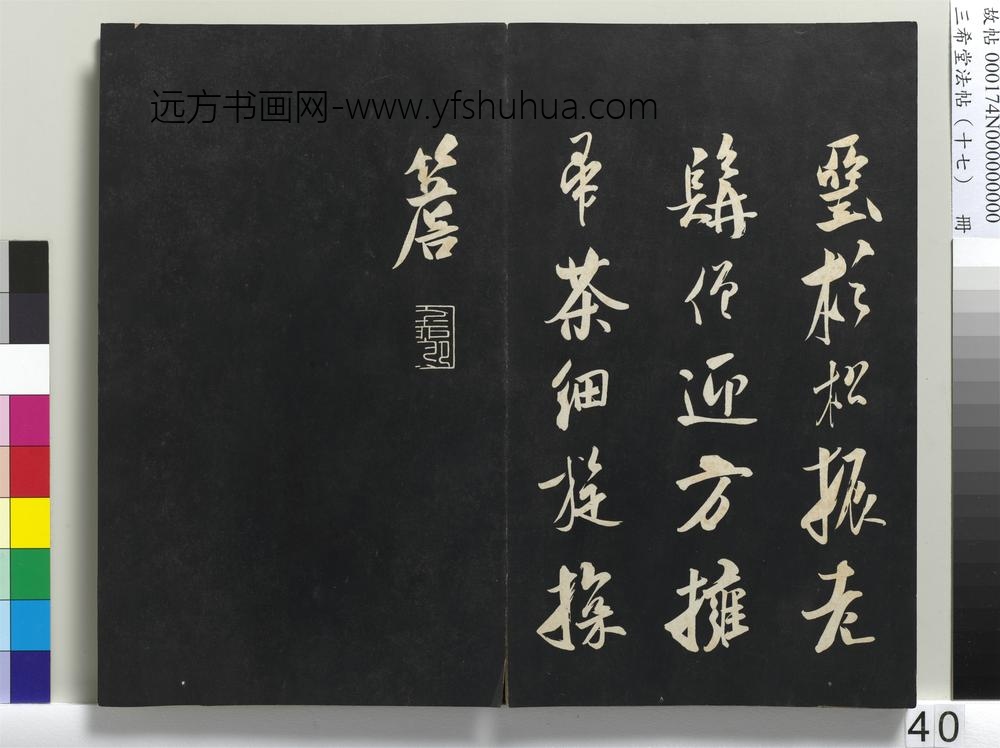 故帖 000174N000000000
三希堂法帖(十七) 冊
远方书画网-www.yfshuhua.com
壑杉松振老
髯僧迎方擁
帚茶細旋探
簷
40